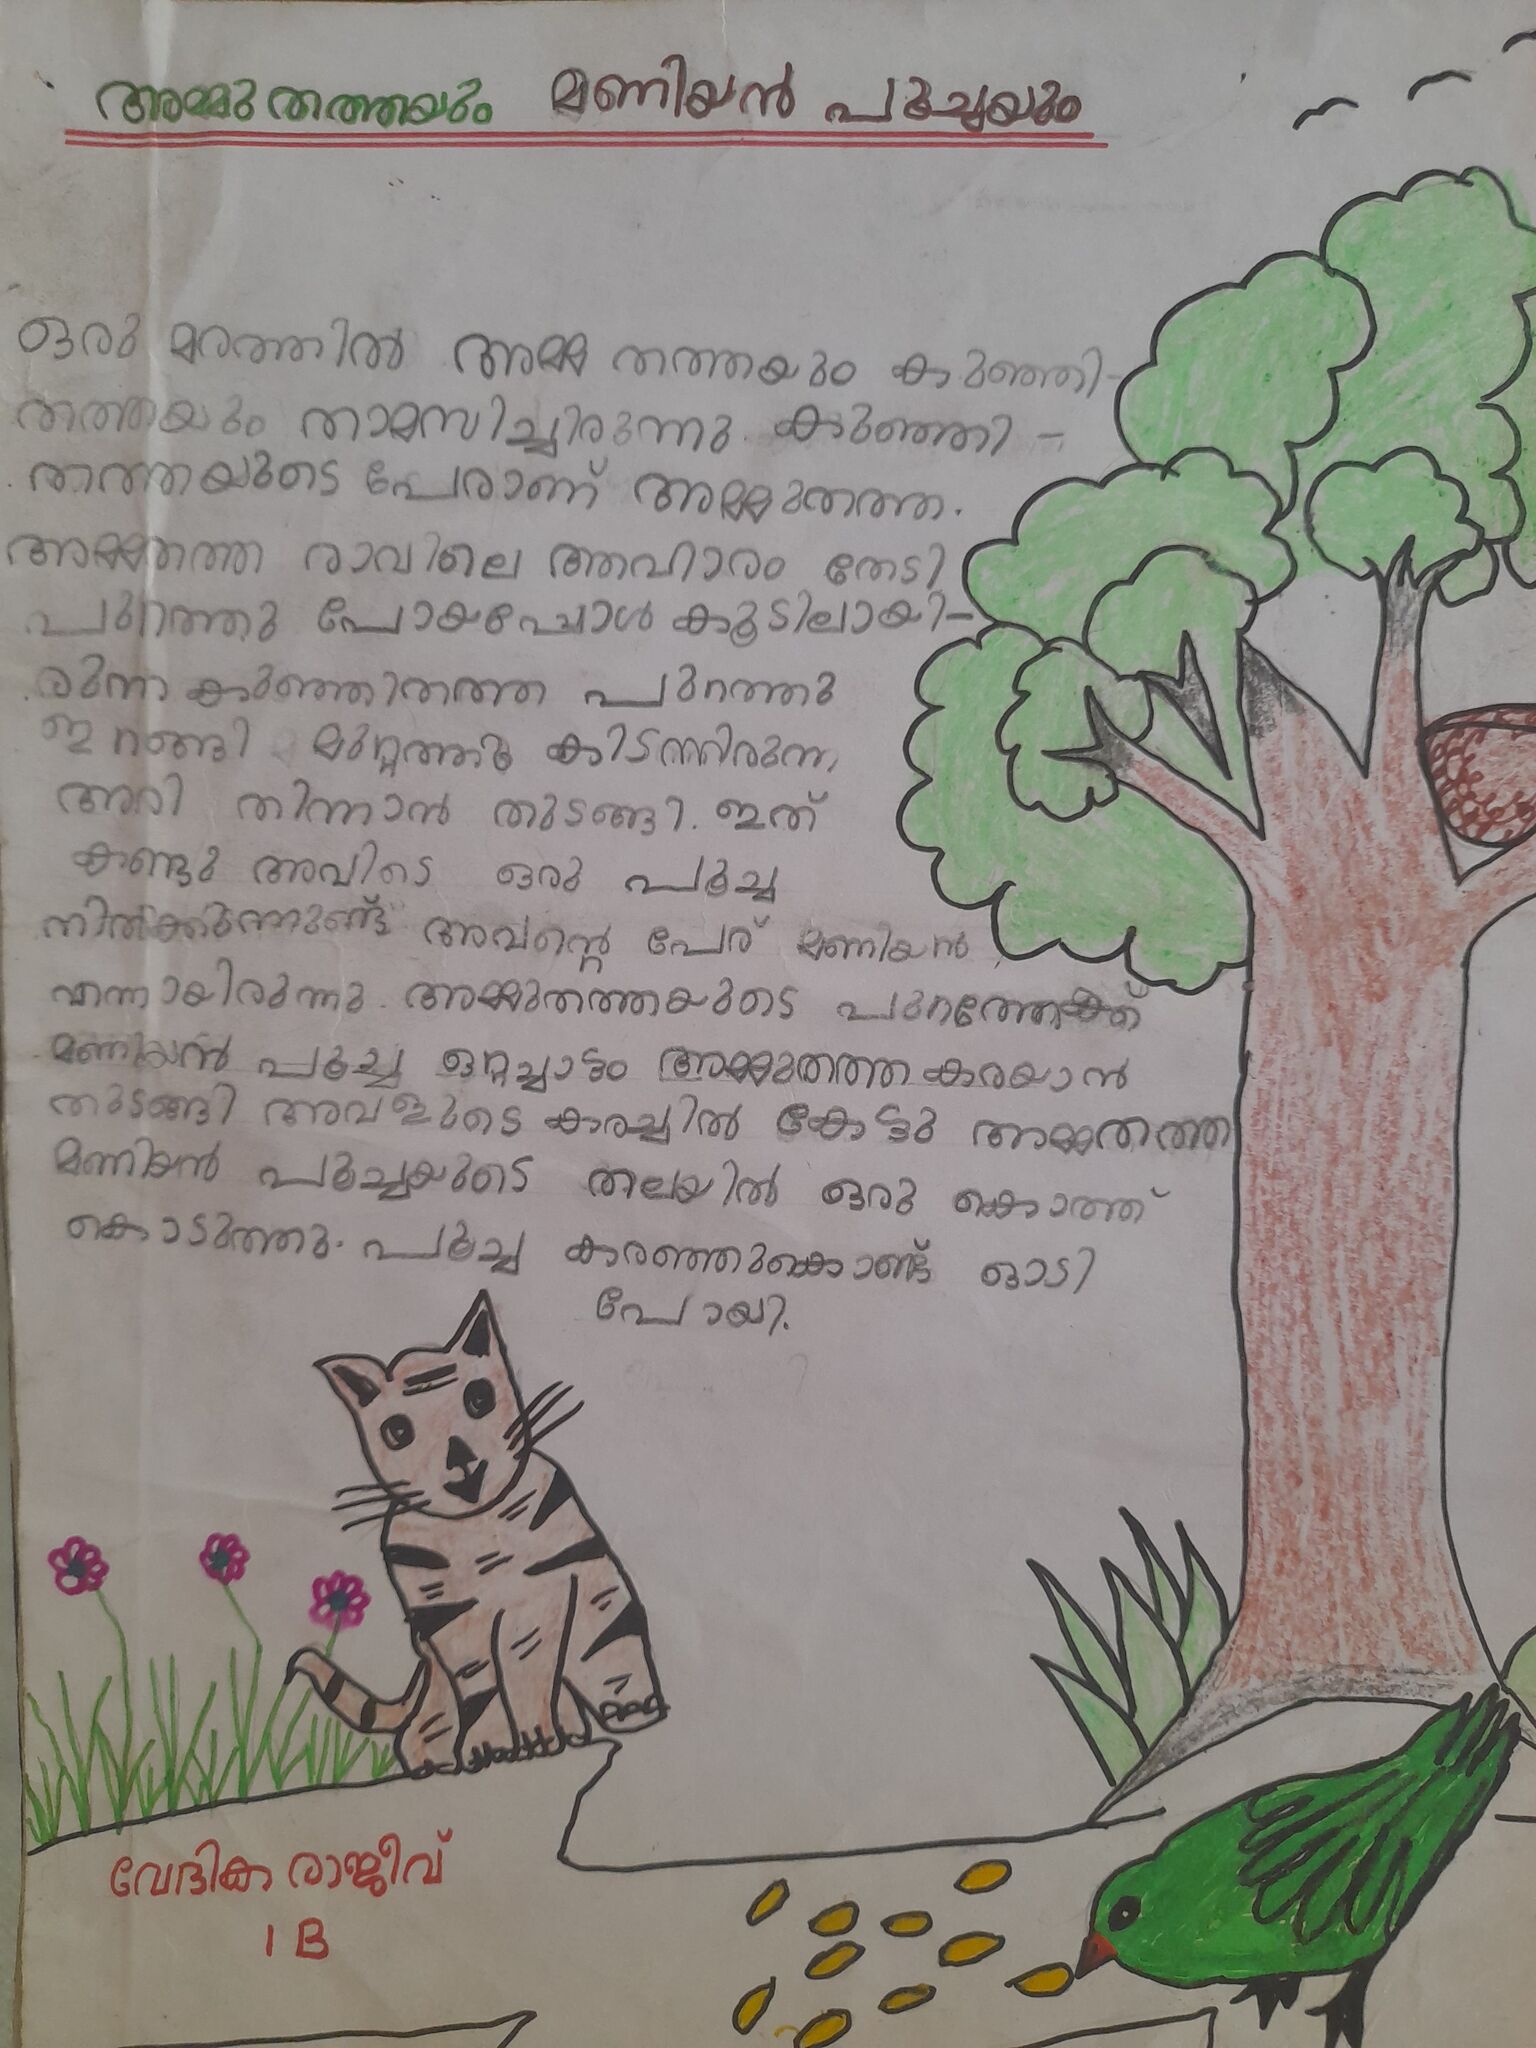 അമ്മു തത്തയും മണിയൻ പൂച്ചയും
ഒരു മരത്തിൽ അമ്മ തത്തയും കുഞ്ഞി-
തത്തയും താമസിച്ചിരുന്നു. കുഞ്ഞി-
തത്തയുടെ പേരാണ് അമ്മുതത്ത.
അമ്മതത്ത രാവിലെ ആഹാരം തേടി
പുറത്തു പോയപ്പോൾ കൂടിലായി-
രുന്ന കുഞ്ഞിതത്ത പുറത്തു
ഇറങ്ങി മുറ്റത്തു കിടന്നിരുന്ന
അരി തിന്നാൻ തുടങ്ങി. ഇത്
കണ്ടു അവിടെ ഒരു പൂച്ച
നിൽക്കുന്നുണ്ട് അവന്റെ പേര് മണിയൻ
എന്നായിരുന്നു. അമ്മുതത്തയുടെ പുറത്തേക്ക്
മണിയൻ പൂച്ച ഒറ്റച്ചാട്ടം അമ്മുതത്ത കരയാൻ
തുടങ്ങി അവളുടെ കരച്ചിൽ കേട്ടു അമ്മതത്ത
മണിയൻ പൂച്ചയുടെ തലയിൽ ഒരു കൊത്ത്
കൊടുത്തു. പൂച്ച കരഞ്ഞുകൊണ്ട് ഓടി
പോയി.
വേദിക രാജീവ്
1 B